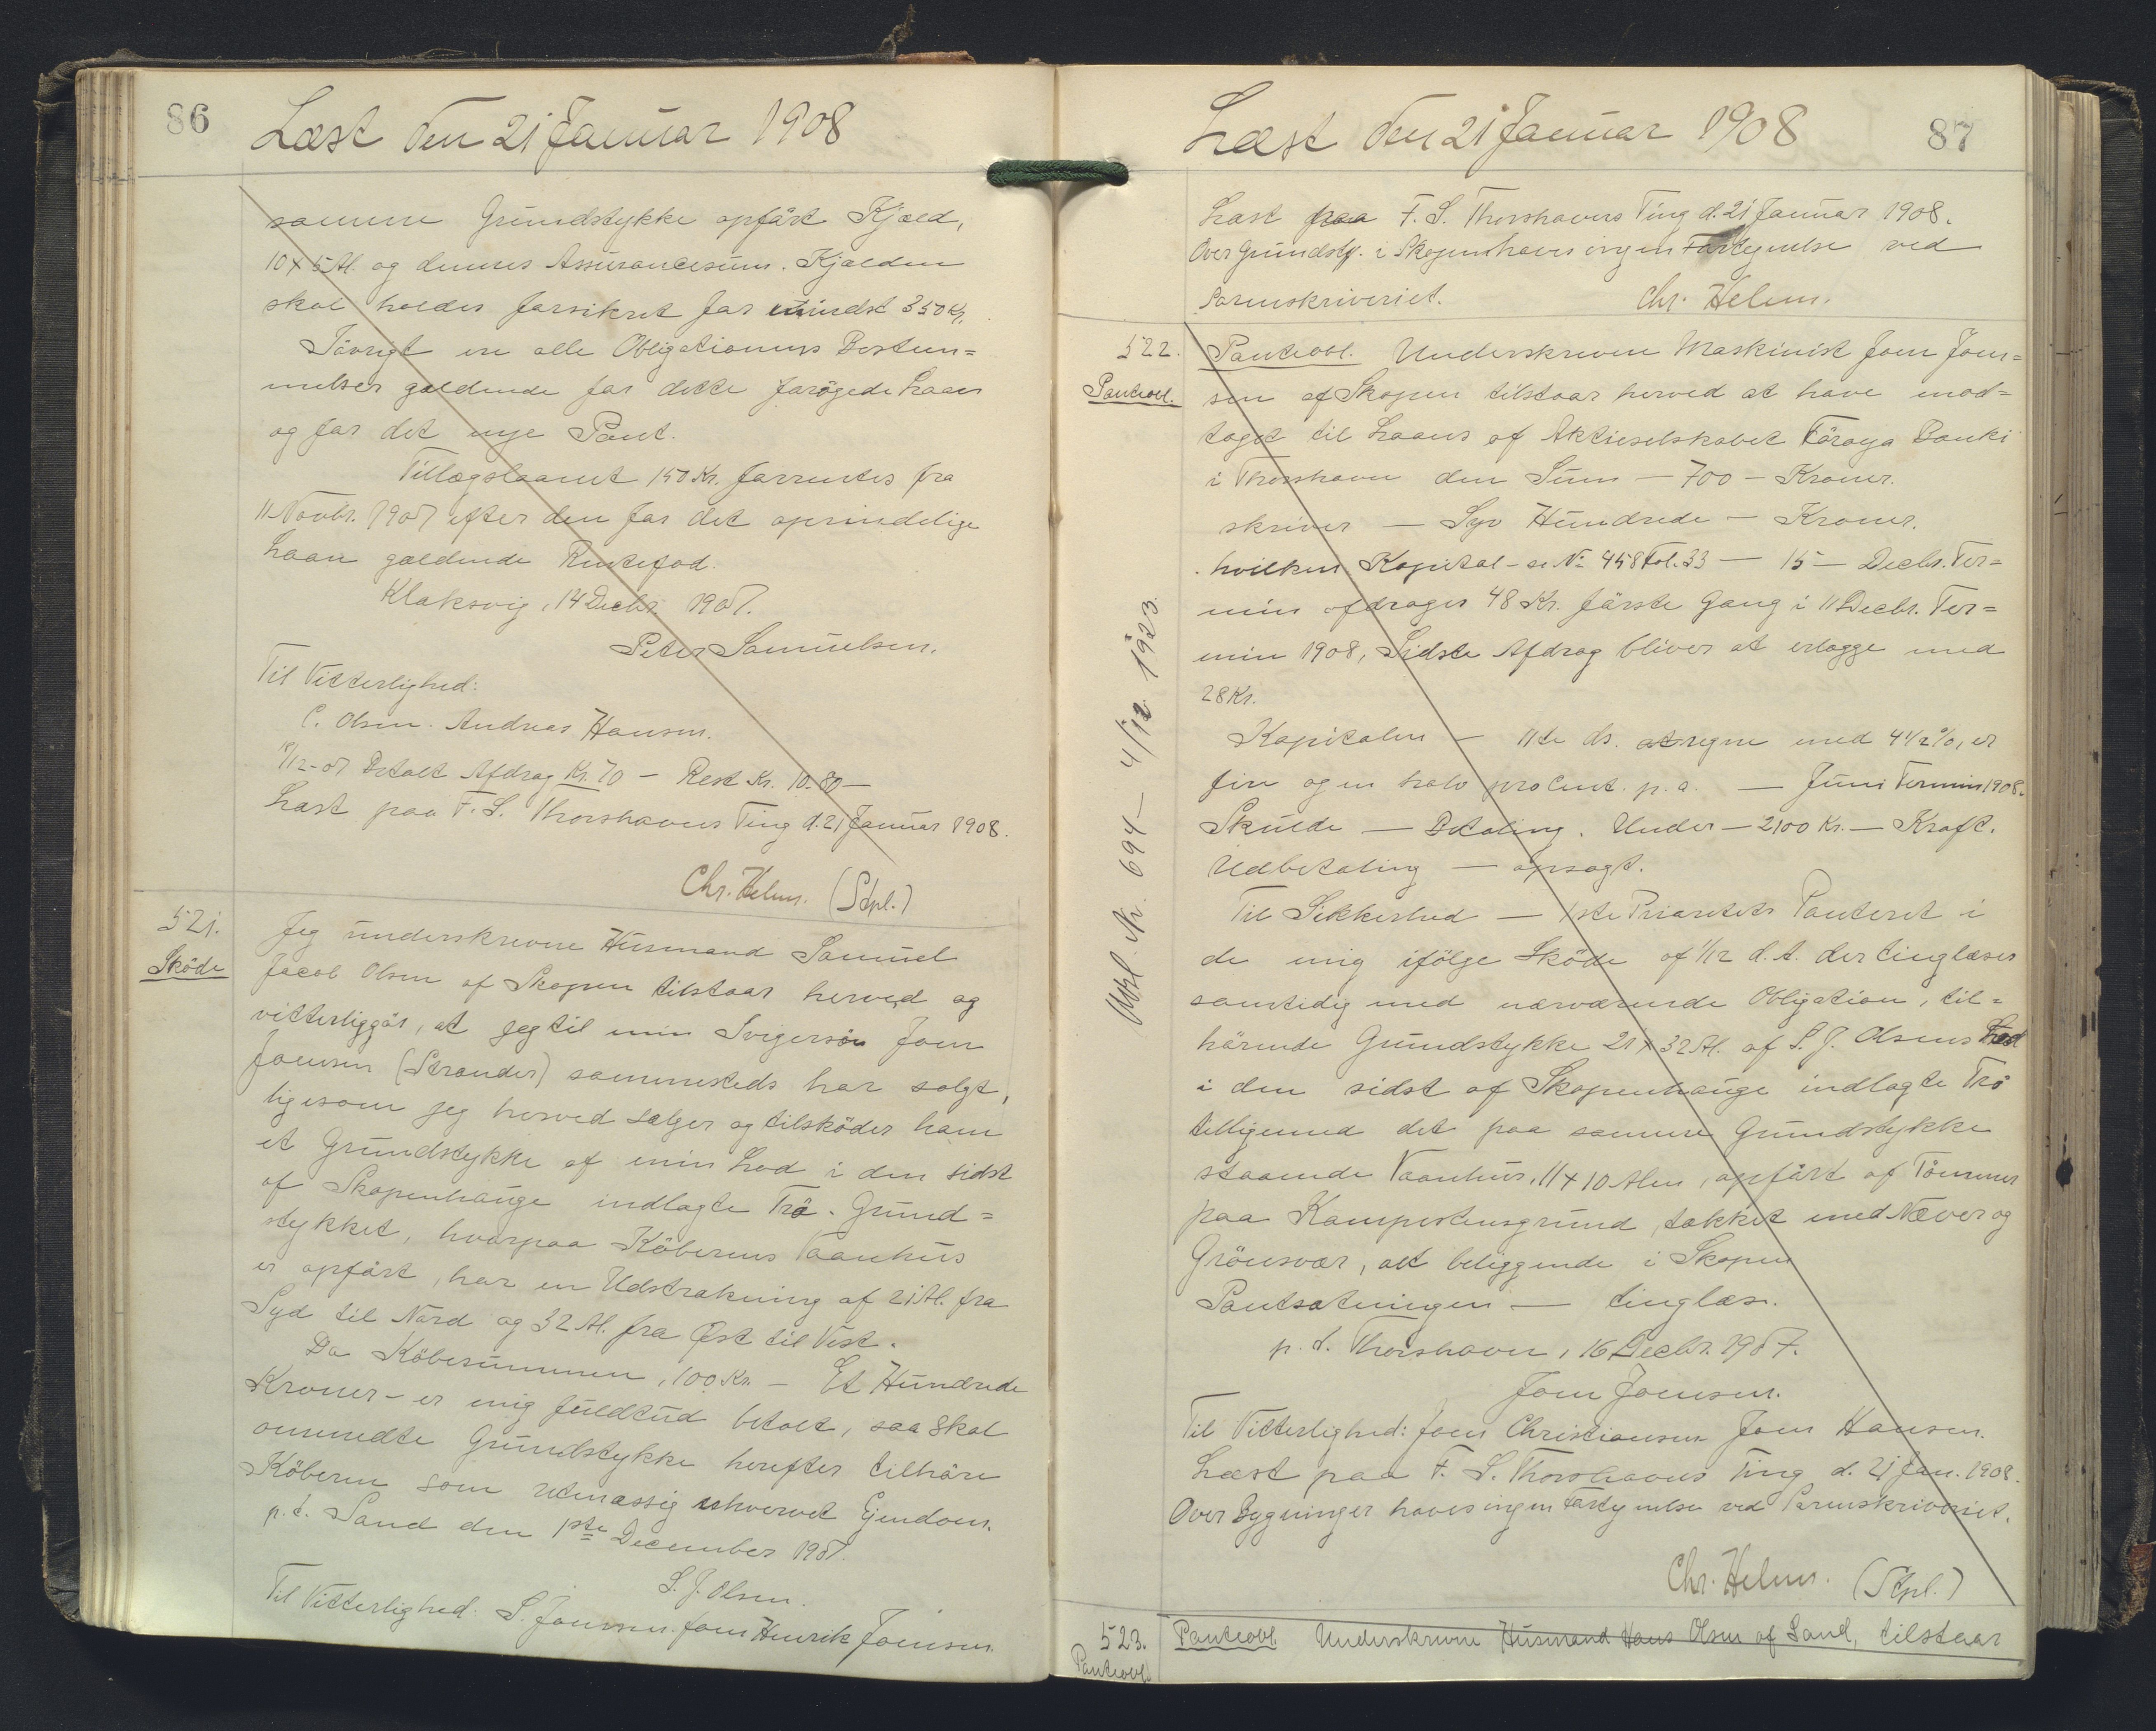 86
Læst den 21 Januar 1908
samme Grundstykke opført Kjæld,
10 x 5 Al. og dennes Assurancesum. Kjælden
skal holdes forsikret for mindst 350 Kr.
Iøvrigt ere alle Obligationens Bestem=
melser gældende for dette forøgede Laan
og for det nye Pant.
Tillægslaanet 150 Kr. forrentes fra
11 Novbr. 1907 efter den for det oprindelige
Laan gældende Rentefod.
Klaksvig, 14 Decbr. 1907.
Peter Samuelsen.
Til Vitterlighed:
C. Olsen. Andreas Hansen.
18/12-07 Betalt Afdrag Kr. 70 — Rest Kr. 10.80 —
Læst paa F. S. Thorshavns Ting d. 21 Januar 1908.
Chr. Helms. (Stpl.)
521.
Sköde
Jeg underskrevne Husmand Samuel
Jacob Olsen af Skopen tilstaar herved og
vitterliggör, at jeg til min Svigersön Joen
Joensen (Strander) sammesteds har solgt,
ligesom jeg herved sælger og tilsköder ham
et Grundstykke af min Lod i den sidst
af Skopenhauge indlagte Trö. Grund=
stykket, hvorpaa Köberens Vaanhus
er opfört, har en Udstrækning af 21 Al. fra
Syd til Nord og 32 Al. fra Øst til Vest.
Da Köbesummen, 100 Kr. — Et Hundrede
Kroner — er mig fuldtud betalt, saa skal
ommeldte Grundstykke herefter tilhöre
Köberen som retmæssig erhvervet Ejendom.
p. t. Sand den 1ste December 1907.
S. J. Olsen.
Til Vitterlighed: S. Joensen. Joen Henrik Joensen.
Læst den 21 Januar 1908
87
Læst paa F. S. Thorshavns Ting d. 21 Januar 1908.
Over Grundsty. i Skopenshavn ingen Fortegnelse ved
Sorenskriveriet. Chr. Helms.
522.
Panteobl.
Panteobl. Underskrevne Maskinist Joen Joen=
sen af Skopen tilstaar herved at have mod=
taget til Laans af Aktieselskabet Föroya Banki
i Thorshavn den Sum — 700 — Kroner.
skriver — Syv Hundrede — Kroner.
hvilken Kapital — se № 458 Fol. 33 — 15 — Decbr. Ter=
min afdrages 48 Kr. första Gang i 11 Decbr. Ter=
min 1908, Sidste Afdrag bliver at erlægge med
28 Kr.
Kapitalen — 11te ds. at regne med 4 1/2 %, er
fire og en halv pro Cent. p. a. — Juni Termin 1908.
Skulde — Betaling. Under — 2100 Kr. — Kraft.
Udbetaling — opsagt.
Til Sikkerhed — 1ste Prioritets Panteret i
de mig ifölge Sköde af 1/12 d. A. der tinglæses
samtidig med nærværende Obligation, til=
hörende Grundstykke 21 x 32 Al. af S. J. Olsens Lod
i den sidst af Skopenhauge indlagte Trö
tilligemed det paa samme Grundstykke
staaende Vaanhus, 11 x 10 Alen, opfört af Tömmer
paa Kampestensgrund, tækket med Næver og
Grönsvær, alt beliggende i Skopen
Pantsætningen — tinglæs.
p. t. Thorshavn, 16 Decbr. 1907.
Joen Joensen.
Til Vitterlighed: Joen Christiansen Joen Hansen.
Læst paa F. S. Thorshavns Ting d. 21 Jan. 1908.
Over Bygninger haves ingen Fortegnelse ved Sorenskriveriet.
Chr. Helms. (Stpl.)
Udsl. Nr. 694 — 4/12. 1923.
523.
Panteobl.
Panteobl. Underskrevne Husmand Hans Olsen af Sand, tilstaar